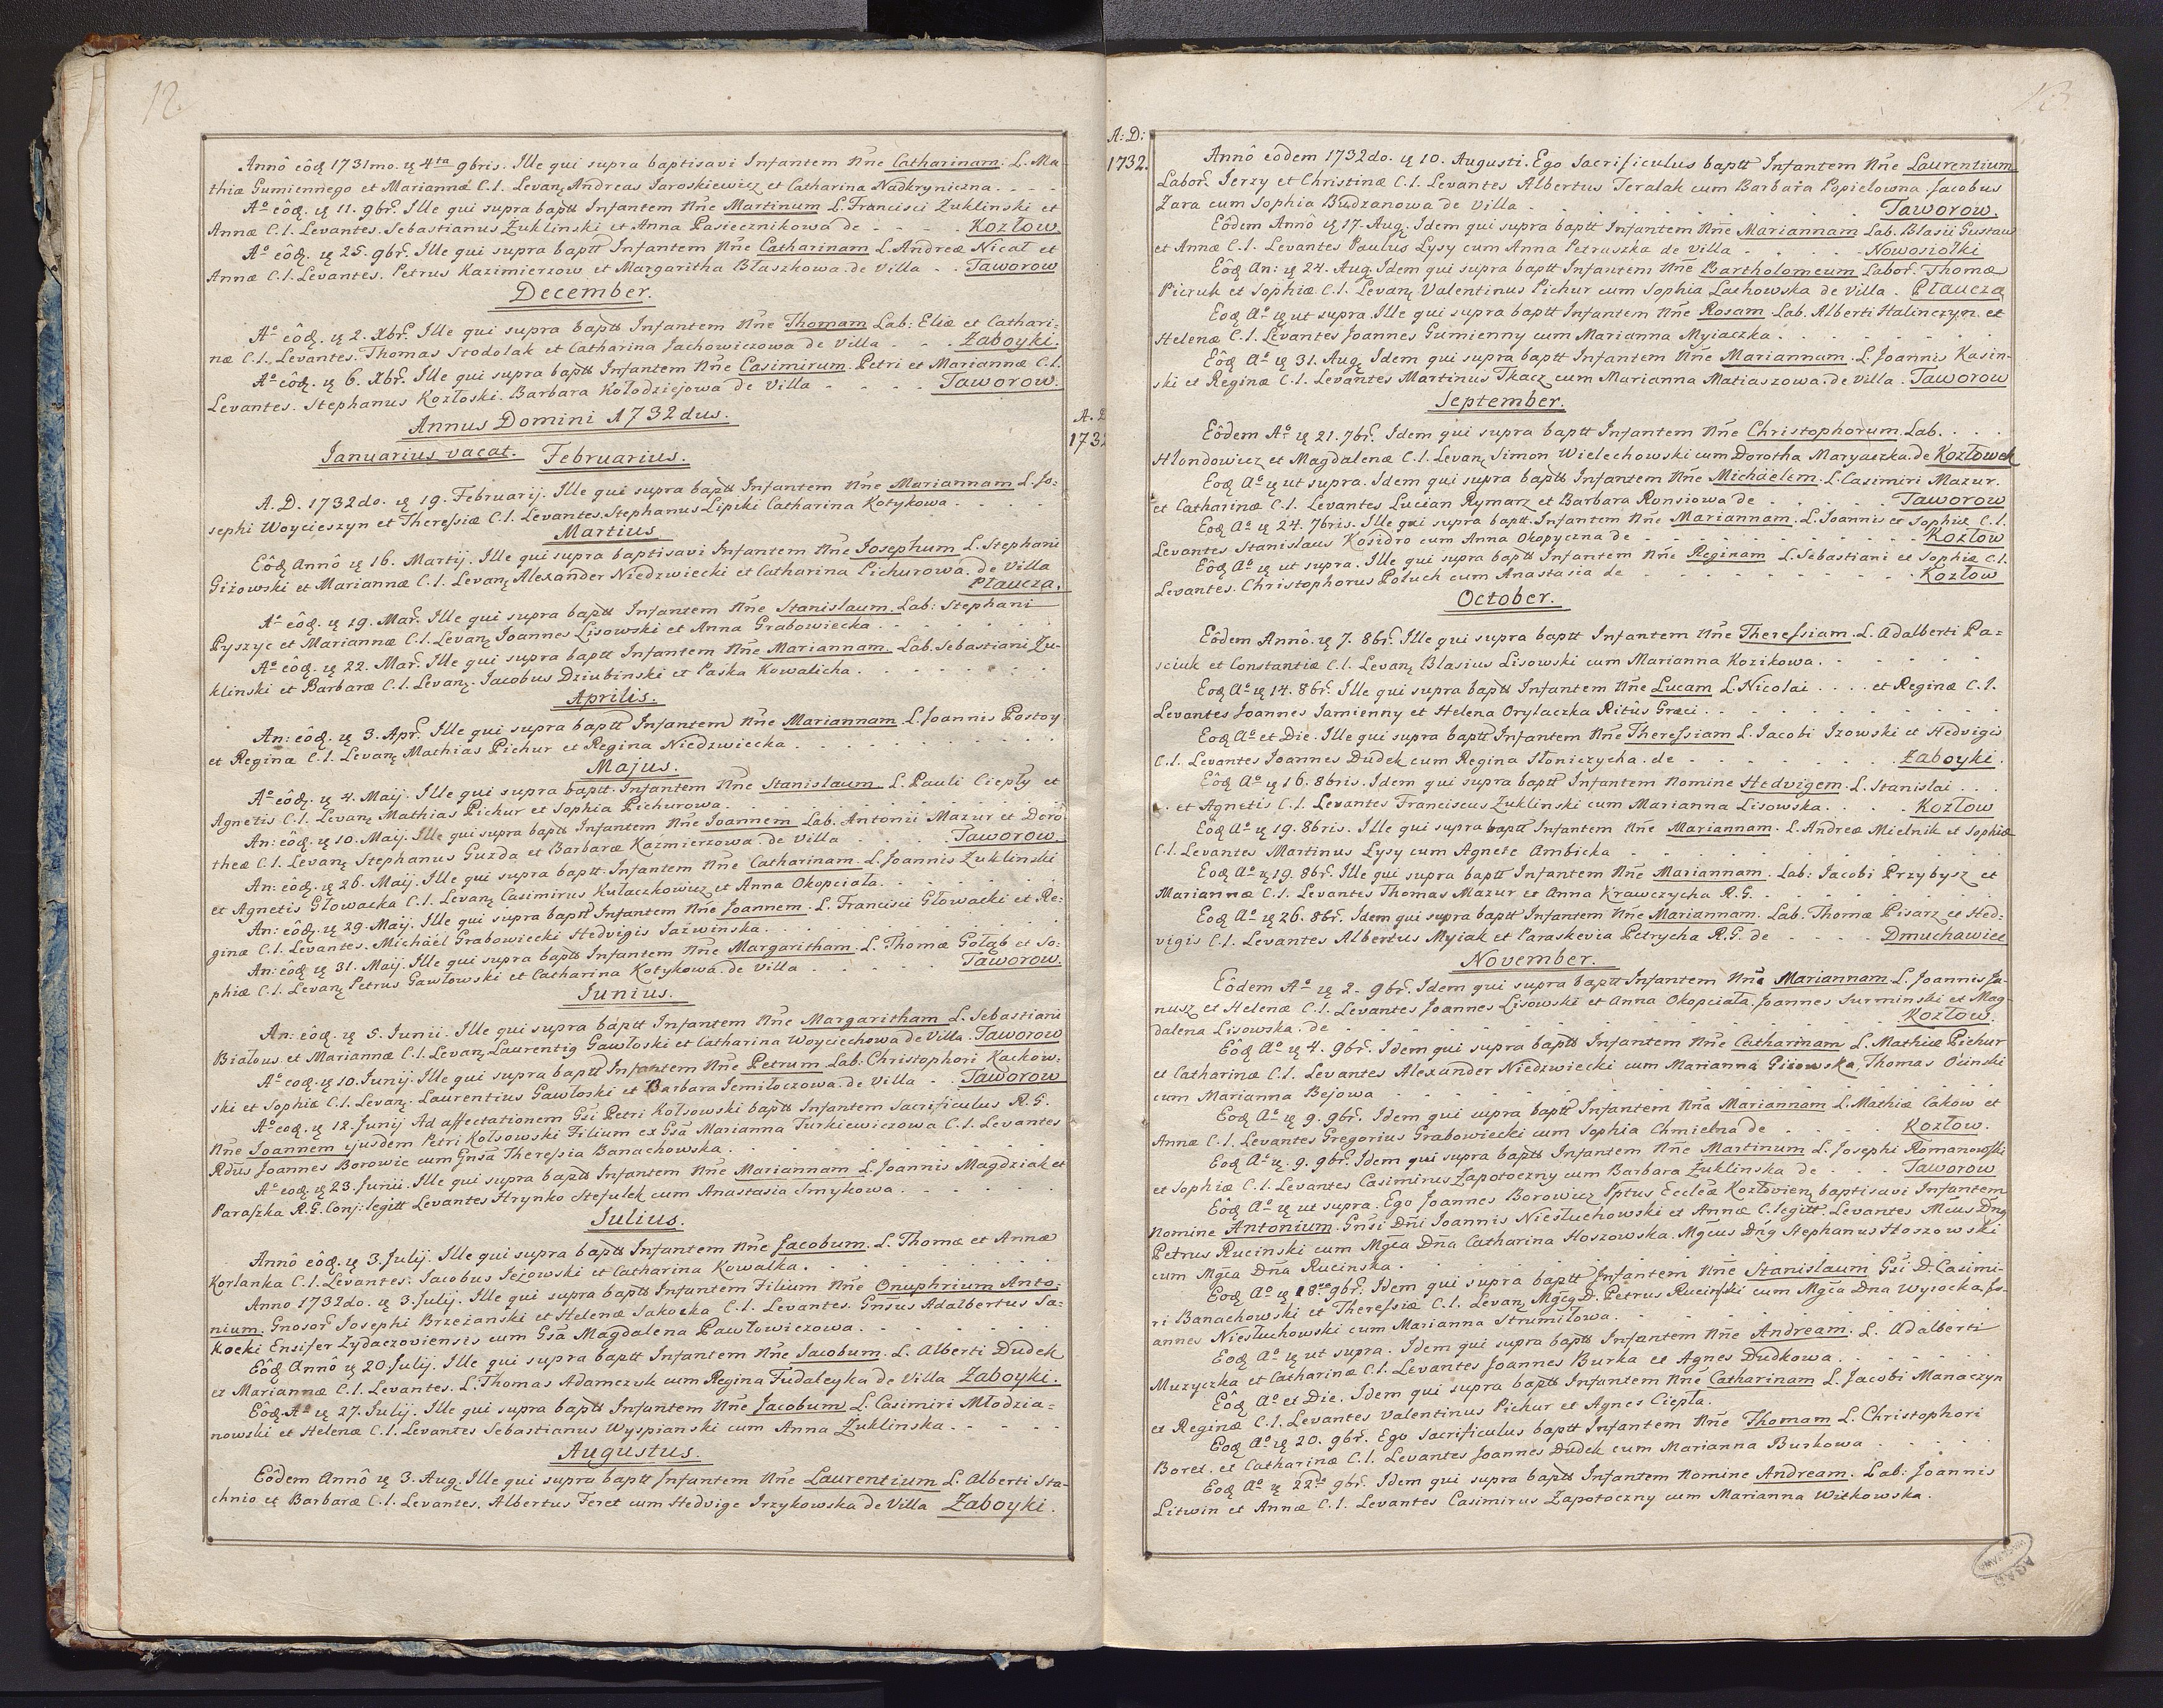 12
Annô eôđ 1731mo. ę 4ta 9bris. Ille qui supra baptisavi Infantem Nne Catharinam. L. Ma-
thiæ Gumiennego et Mariannæ C.l. Levanę Andreas Jaroskiewicz et Catharina Nadkryniczna. - - -
Ao eôđ. ę 11. 9br. Ille qui supra baptt Infantem Nne Martinum L. Francisci Żuklinski et
Annæ C.l. Levantes. Sebastianus Żuklinski et Anna Pasiecznikowa de - - - - Kozłow
Ao eôđ. ę 25. 9br. Ille qui supra baptt Infantem Nne Catharinam L. Andreæ Nicał et
Annæ C.l. Levantes. Petrus Kazimierzow et Margaritha Błaszkowa. de Villa - . Taworow
December.
Ao eôđ. ę 2. Xbr. Ille qui supra baptt Infantem Nne Thomam Lab: Eliæ et Cathari:
næ C.l. Levantes. Thomas Stodolak et Catharina Jachowiczowa de Villa - - . Zaboyki.
Ao eôđ. ę 6. Xbr. Ille qui supra baptt Infantem Nne Casimirum. Petri et Mariannæ C.l.
Levantes. Stephanus Kozłoski. Barbara Kołodziejowa de Villa - - - - Taworow.
Annus Domini 1732dus.
A. D
1732
Ianuarius vacat. Februarius.
A. D. 1732do. ę 19. Februarij. Ille qui supra baptt Infantem Nne Mariannam L. Jo:
sephi Woycieszyn et Theressiæ C.l. Levantes. Stephanus Lipski Catharina Kotykowa - - - -
Martius
Eôđ Annô ę 16. Martij. Ille qui supra baptisavi Infantem Nne Iosephum L. Stephani
Giżowski et Mariannæ C.l. Levanę Alexander Niedzwiecki et Catharina Pichurowa. de Villa
Płaucza.
Ao eôđ. ę 19. Mar. Ille qui supra baptt Infantem Nne Stanislaum. Lab: Stephani
Pyszyc et Mariannæ C.l. Levanę Joannes Lisowski et Anna Grabowiecka - - - -
Ao eôđ. ę 22. Mar. Ille qui supra baptt Infantem Nne Mariannam. Lab. Sebastiani Żu-
klinski et Barbaræ C.l. Levanę. Jacobus Dziubinski et Paska Kowalicha. - - - -
Aprilis.
An: eôđ. ę 3. Apr. Ille qui supra baptt Infantem Nne Mariannam L. Joannis Postoy
et Reginæ C.l. Levanę Mathias Pichur et Regina Niedzwiecka - - - -
Majus.
Ao eôđ. ę 4. Maij. Ille qui supra baptt Infantem Nne Stanislaum L. Pauli Ciepły et
Agnetis C.l. Levanę Mathias Pichur et Sophia Pichurowa. - - - -
An: eôđ. ę 10. Maij. Ille qui supra baptt Infantem Nne Joannem Lab. Antonii Mazur et Doro
theæ C.l. Levanę Stephanus Guzda et Barbaræ Kazmierzowa. de Villa - - Taworow.
An: eôđ. ę 26. Maij. Ille qui supra baptt Infantem Nne Catharinam. L. Joannis Żuklinski
et Agnetis Głowacka C.l. Levanę Casimirus Kułaczkowicz et Anna Okopciała. - - - -
An: eôđ. ę 29. Maij. Ille qui supra baptt Infantem Nne Joannem. L. Francisci Głowacki et Re:
ginæ C.l. Levantes. Michäel Grabowiecki Hedvigis Jaźwinska. - - - -
An: eôđ ę 31. Maij. Ille qui supra baptt Infantem Nne Margaritham. L. Thomæ Gołąb et So:
phiæ C.l. Levanę Petrus Gawłowski et Catharina Kotykowa. de Villa - - - Taworow.
Iunius.
An: eôđ. ę 5. Iunii. Ille qui supra baptt Infantem Nne Margaritham L. Sebastiani
Białous et Mariannæ C.l. Levanę Laurentig Gawłoski et Catharina Woyciechowa de Villa. Taworow
Ao eođ. ę 10. Iunij. Ille qui supra baptt Infantem Nne Petrum Lab: Christophori Kackow:
ski et Sophiæ C.l. Levanę. Laurentius Gawłoski et Barbara Jemiłoczowa. de Villa - . Taworow
Ao eođ. ę 12. Junij Ad affectationem Gsi Petri Kołsowski baptt Infantem Sacrificulus R.G.
Nne Joannem ejusdem Petri Kołsowski Filium ex Gsa Marianna Turkiewiczowa C.l. Levantes
Rdus Joannes Borowic cum Gnsa Theressia Banachowska. - - - -
Ao eođ. ę 23. Junii. Ille qui supra baptt Infantem Nne Mariannam L. Joannis Magdziak et
Paraszka R.G. Conj: legitt Levantes Hrynko Stefulek cum Anastasia Smykowa. - - - -
Iulius.
Annô eôđ. ę 3. Julij. Ille qui supra baptt Infantem Nne Jacobum. L. Thomæ et Annæ
Korlanka C.l. Levantes. Jacobus Jeżowski et Catharina Kowalka. - - - -
Anno 1732do. ę 3. Julij. Ille qui supra baptt Infantem Filium Nne Onuphrium Anto:
nium. Gnosor Josephi Brzeżanski et Helenæ Jakocka C.l. Levantes. Gnsus Adalbertus Sa:
kocki Ensifer Zydaczoviensis cum Gsa Magdalena Pawłowiczowa. - - - -
Eôđ Annô ę 20. Julij. Ille qui supra baptt Infantem Nne Jacobum. L. Alberti Dudek
et Mariannæ C.l. Levantes. L. Thomas Adamczuk cum Regina Fudaleyka de Villa Zaboyki.
Eôđ. Ao ę 27. Julij. Ille qui supra baptt Infantem Nne Jacobum L. Casimiri Młodzia=
nowski et Helenæ C.l. Levantes Sebastianus Wyspianski cum Anna Żuklinska. - - - -
Augustus.
Eôdem Annô ę 3. Aug. Ille qui supra baptt Infantem Nne Laurentium L. Alberti Sta-
chnio et Barbaræ C.l. Levantes. Albertus Feret cum Hedvige Irzykowska de Villa Zaboyki.
13
A: D:
1732.
Annô eôdem 1732do. ę 10. Augusti. Ego Sacrificulus baptt Infantem Nne Laurentium
Labor. Jerzy et Christinæ C.l. Levantes Albertus Teralak cum Barbara Popielowna. Jacobus
Zara cum Sophia Budzanowa de Villa - - - - Taworow.
Eôdem Annô ę 17. Aug. Idem qui supra baptt Infantem Nne Mariannam Lab. Blasii Gustaw
et Annæ C.l. Levantes Paulus Lysy cum Anna Petruszka de Villa - - - - Nowosiołki
Eôđ An: ę 24. Aug. Idem qui supra baptt Infantem Nne Bartholomeum Labor. Thomæ
Picruk et Sophiæ C.l. Levanę Valentinus Pichur cum Sophia Lachowska de Villa. Płaucza
Eođ Ao ę ut supra. Ille qui supra baptt Infantem Nne Rosam Lab. Alberti Halinczyn. et
Helenæ C.l. Levantes Joannes Gumienny cum Marianna Myiaczka. - - - -
Eôđ Ao ę 31. Aug. Idem qui supra baptt Infantem Nne Mariannam. L. Joannis Kasin-
ski et Reginæ C.l. Levantes Martinus Tkacz cum Marianna Matiaszowa. de Villa. Taworow
September.
Eôdem Ao ę 21. 7br. Idem qui supra baptt Infantem Nne Christophorum. Lab. . . .
Hlondowicz et Magdalenæ C.l. Levanę Simon Wielechowski cum Dorotha Maryaczka. de Kozłowek
Eođ Ao ę ut supra. Idem qui supra baptt Infantem Nne Michäelem. L. Casimiri Mazur.
et Catharinæ C.l. Levantes Lucian Rymarz et Barbara Ronsiowa de - - - Taworow
Eođ Ao ę 24. 7bris. Ille qui supra baptt. Infantem Nne Mariannam. L. Joannis et Sophiæ C.l.
Levantes Stanislaus Kosidro cum Anna Okopyczna de - - - - Kozłow
Eôđ Ao ę ut supra. Ille qui supra baptt Infantem Nne Reginam L. Sebastiani et Sophiæ C.l.
Levantes. Christophorus Połuch cum Anastasia de - - - - Kozłow
October.
Eôdem Annô. ę 7. 8br. Ille qui supra baptt Infantem Nne Theressiam. L. Adalberti Pa=
sciuk et Constantiæ C.l. Levanę Blasius Lisowski cum Marianna Kozikowa. - - - -
Eođ Ao ę 14. 8br. Ille qui supra baptt Infantem Nne Lucam L. Nicolai . . . . et Reginæ C.l.
Levantes Joannes Jamienny et Helena Orylaczka Ritûs Græci - - - -
Eođ Ao et Die. Ille qui supra baptt Infantem Nne Theressiam L. Jacobi Izowski et Hedvigis
C.l. Levantes Joannes Dudek cum Regina Słoniczycha. de - - - - Zaboyki.
Eôđ Ao ę 16. 8bris. Idem qui supra baptt Infantem Nomine Hedvigem. L. Stanislai . . .
. . et Agnetis C.l. Levantes Franciscus Żuklinski cum Marianna Lisowska. - - - Kozłow
Eôđ Ao ę 19. 8bris. Ille qui supra baptt Infantem Nne Mariannam. L. Andreæ Mielnik et Sophiæ
C.l. Levantes Martinus Lysy cum Agnete Ambicka - - - -
Eođ Ao ę 19. 8br. Ille qui supra baptt Infantem Nne Mariannam. Lab: Jacobi Przybysz et
Mariannæ C.l. Levantes Thomas Mazur et Anna Krawczycha R.G. - - - -
Eođ Ao ę 26. 8br. Idem qui supra baptt Infantem Nne Mariannam. Lab. Thomæ Pisarz et Hed:
vigis C.l. Levantes Albertus Myiak et Paraskevia Petrycha R.G. de - - - - Dmuchawiec
November.
Eôdem Ao ę 2. 9br. Idem qui supra baptt Infantem Nne Mariannam L. Joannis Ja-
nusz et Helenæ C.l. Levantes Joannes Lisowski et Anna Okopciała. Joannes Surminski et Mag-
dalena Lisowska. de - - - - Kozłow.
Eôđ Ao ę 4. 9br. Idem qui supra baptt Infantem Nne Catharinam L. Mathiæ Pichur
et Catharinæ C.l. Levantes Alexander Niedzwiecki cum Marianna Giżowska, Thomas Ocinski
cum Marianna Bejowa - - - -
Eođ Ao ę 9. 9br. Idem qui supra baptt Infantem Nne Mariannam L. Mathiæ Cakow et
Annæ C.l. Levantes Gregorius Grabowiecki cum Sophia Chmielna de - - - - Kozłow.
Eođ Ao ę. 9. 9br. Idem qui supra baptt Infantem Nne Martinum L. Josephi Romanowski
et Sophiæ C.l. Levantes Casimirus Zapotoczny cum Barbara Żuklinska de - - - Taworow
Eôđ Ao ę ut supra. Ego Joannes Borowicz Pptus Eccleæ Kozłovienę baptisavi Infantem
Nomine Antonium. Gnsi Dni Joannis Niesłuchowski et Annæ C. legitt. Levantes Mcus Dng
Petrus Rucinski cum Mgca Dna Catharina Hoszowska. Mgcus Dng Stephanus Hoszowski
cum Mgca Dna Rucinska. - - - -
Eođ Ao ę 18va 9br. Idem qui supra baptt Infantem Nne Stanislaum Gsi D. Casimi-
ri Banachowski et Theressiæ C.l. Levanę Mgcg D. Petrus Rucinski cum Mgca Dna Wysocka. Jo-
annes Niesłuchowski cum Marianna Strumiłowa. - - - -
Eođ Ao ę ut supra. Idem qui supra baptt Infantem Nne Andream. L. Adalberti
Muzyczka et Catharinæ C.l. Levantes Joannes Burka et Agnes Dudkowa. - - - -
Eôđ Ao et Die. Idem qui supra baptt Infantem Nne Catharinam L. Jacobi Manaczyn
et Reginæ C.l. Levantes Valentinus Pichur et Agnes Ciepła.
Eođ Ao ę 20. 9br. Ego Sacrificulus baptt Infantem Nne Thomam L. Christophori
Boret. et Catharinæ C.l. Levantes Joannes Dudek cum Marianna Burkowa - - - -
Eođ Ao ę 22da 9br. Idem qui supra baptt Infantem Nomine Andream. Lab: Joannis
Litwin et Annæ C.l. Levantes Casimirus Zapotoczny cum Marianna Witkowska.